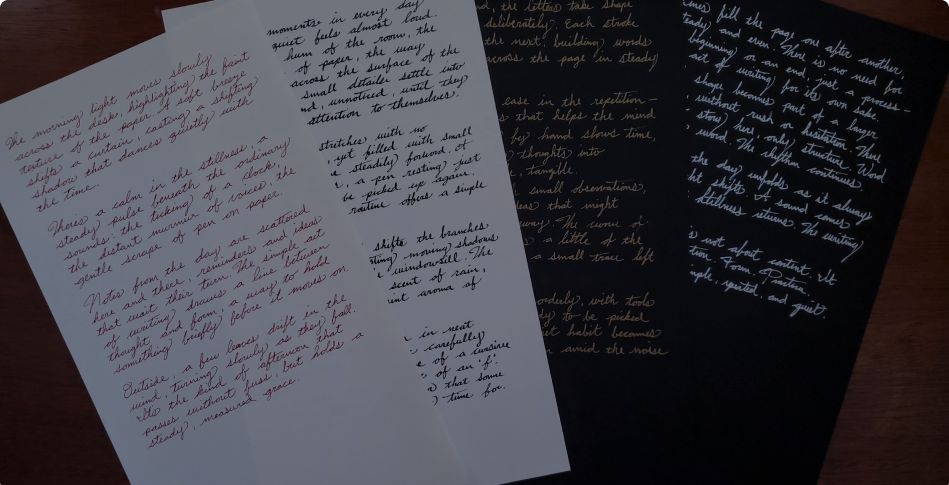 The morning light moves slowly
across the desk, highlighting the faint
texture of the paper. A soft breeze
shifts a curtain, casting a shifting
shadow that dances quietly with
the time.
There's a calm in the stillness, a
steady pulse beneath the ordinary
sounds: the ticking of a clock,
the distant murmur of voices, the
gentle scrape of pen on paper.
Notes from the day are scattered
here and there, reminders and ideas
that wait their turn. The simple act
of writing draws a line between
thought and form, a way to hold
something briefly before it moves on.
Outside, a few leaves drift in the
wind, turning slowly as they fall.
It's the kind of afternoon that
passes without fuss, but holds a
steady, measured grace.
moments in every day
quiet feels almost loud.
hum of the room, the
of paper, the way
across the surface of the
small details settle into
nd, unnoticed, until they
attention to themselves.
stretches with no
, yet filled with small
steadily forward. Of
, a pen resting just
be picked up again.
routine offers a simple
shifts the branches
moving shadows
windowsill. The
scent of rain,
int aroma of
in neat
carefully
of a cursive
of an "f".
that some
time for
nd, the letters take shape
deliberately. Each stroke
the next, building words
across the page in steady
ease in the repetition—
that helps the mind
by hand shows time,
thoughts into
, tangible.
small observations,
ideas that might
away. The curve of
a little of the
a small trace left
orderly, with tools
dy to be picked
et habit becomes
n amid the noise
lines fill the page one after another,
teady and even. There is no need for
beginning or an end, just a process—
act of writing for its own sake.
shape becomes part of a larger
without rush or hesitation. There
story here, only structure. Word
word. The rhythm continues.
the day unfolds as it always
ht shifts. A sound comes
stillness returns. The writing
is not about content. It
tion. Form. Practice.
mple, repeated, and quiet.